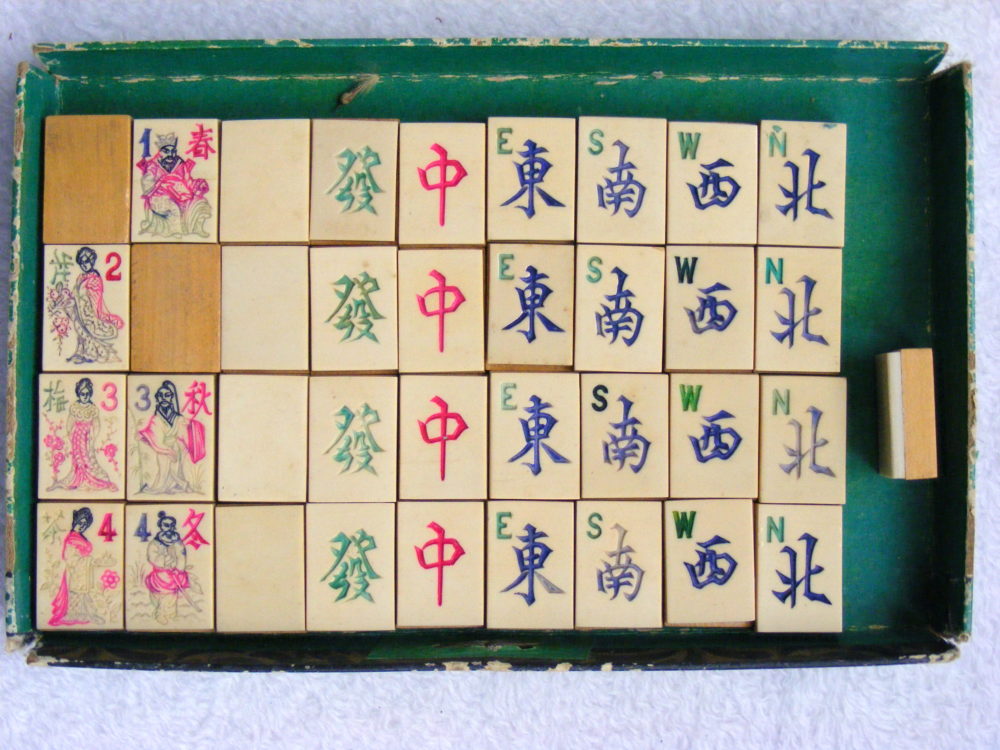 1 春 發 中 E 東 S 南 W 西 N 北
2 發 中 E 東 S 南 W 西 N 北
梅 3 3 秋 發 中 E 東 S 南 W 西 N 北
4 4 冬 發 中 E 東 S 南 W 西 N 北